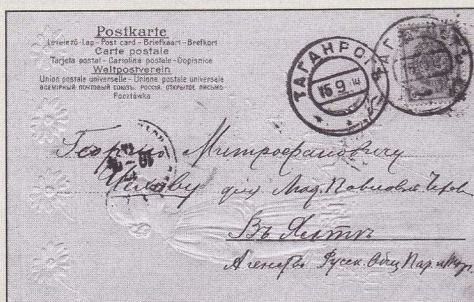 Postkarte
Levelező-Lap - Post card - Briefkaart - Brefkort
Carte postale
Tarjeta postal - Cartolina postale - Dopisnice
Weltpostverein
Union postale universelle - Unione postale universale
ВСЕМІРНЫЙ ПОЧТОВЫЙ СОЮЗЪ. РОССІЯ. ОТКРЫТОЕ ПИСЬМО
Pocztówka
ТАГАНРО
15 9
ТАГАН
Георгію Митрофановичу
Чехову для Павловны Чехов
Въ Ялтѣ
Агенство Русск. Общ. Пар. и Тор.